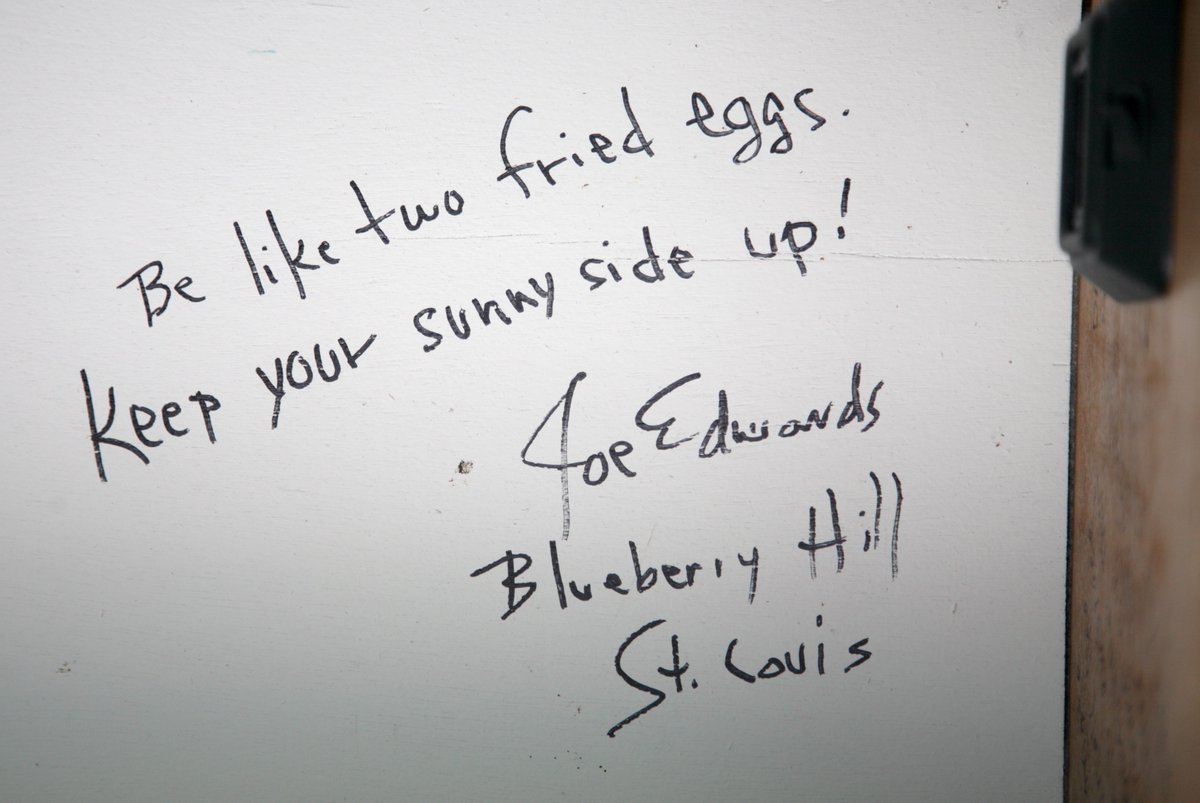 Be like two fried eggs.
Keep your sunny side up!
Joe Edwards
Blueberry Hill
St. Louis